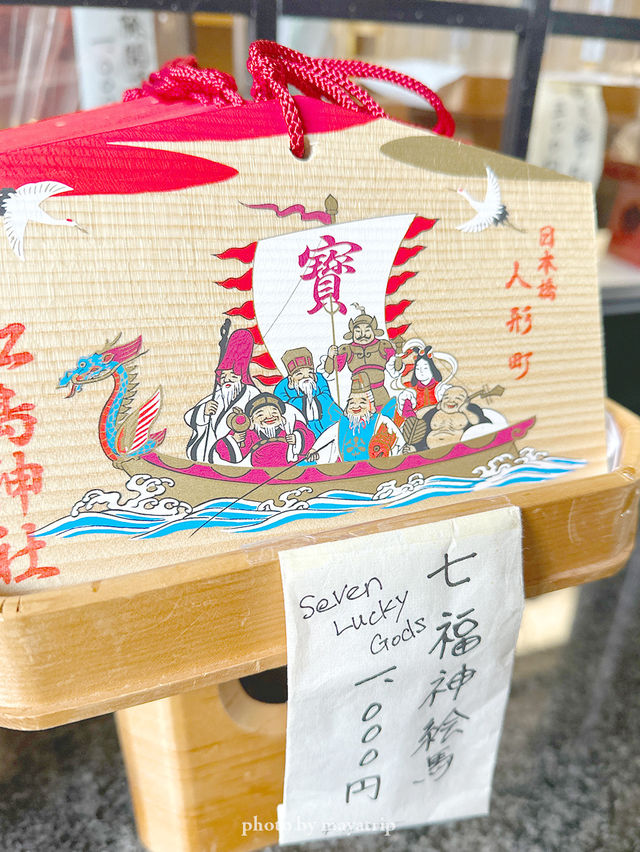 寶
日本橋
人形町
島神社
七福神絵馬
Seven
Lucky
Gods
一、000円
photo by mayatrip